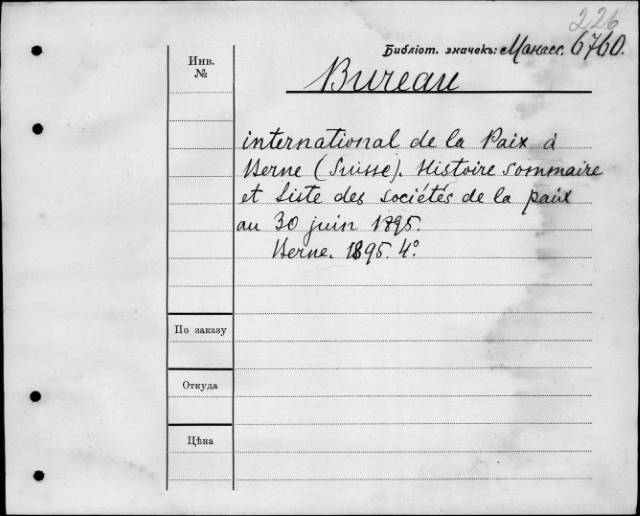 226
Библіот. значекъ: Манасс. 6760.
Инв.
№
Bureau
international de la Paix à
Berne (Suisse). Histoire sommaire
et Liste des sociétés de la paix
au 30 juin 1895.
Berne. 1895. 4°.
По заказу
Откуда
Цѣна